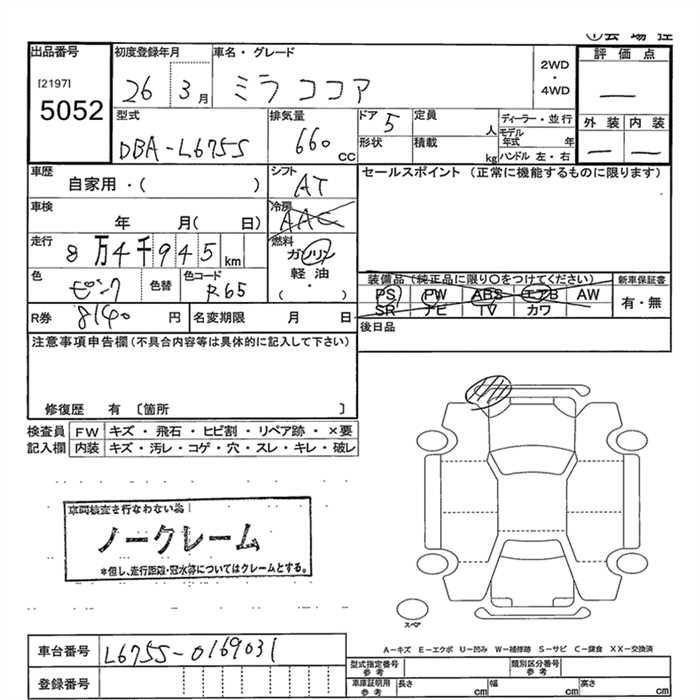 出品番号
[2197]
5052
初度登録年月
26 3月
車名・グレード
ミラ ココア
2WD
・
4WD
評価点
—
外装 内装
— —
型式
DBA-L675S
排気量
660 CC
ドア 5
定員 人
形状
積載 kg
ディーラー・並行
モデル年式 年
ハンドル 左・右
車歴
自家用・( )
シフト
AT
セールスポイント (正常に機能するものに限ります)
車検
年 月( 日)
冷房
AAC
走行
8万4千945 km
燃料
ガソリン
軽油
( ・ )
色
ピンク
色替
色コード
R65
装備品(純正品に限り〇をつけてください)
PS PW ABS エアB AW
SR ナビ TV カワ
新車保証書
有・無
R券 8140 円
名変期限 月 日
後日品
注意事項申告欄(不具合内容等は具体的に記入して下さい)
修復歴 有 〔箇所 〕
検査員
記入欄
FW キズ・飛石・ヒビ割・リペア跡・×要
内装 キズ・汚レ・コゲ・穴・スレ・キレ・破レ
車両検査を行なわない為
ノークレーム
*但し、走行距離・冠水等についてはクレームとする。
スペア
A-キズ E-エクボ U-凹み W-補修跡 S-サビ C-腐食 XX-交換済
車台番号 L675S-0169031
登録番号
型式指定番号
参考
類別区分番号
参考
車庫証明用
参考
長さ cm 幅 cm 高さ cm